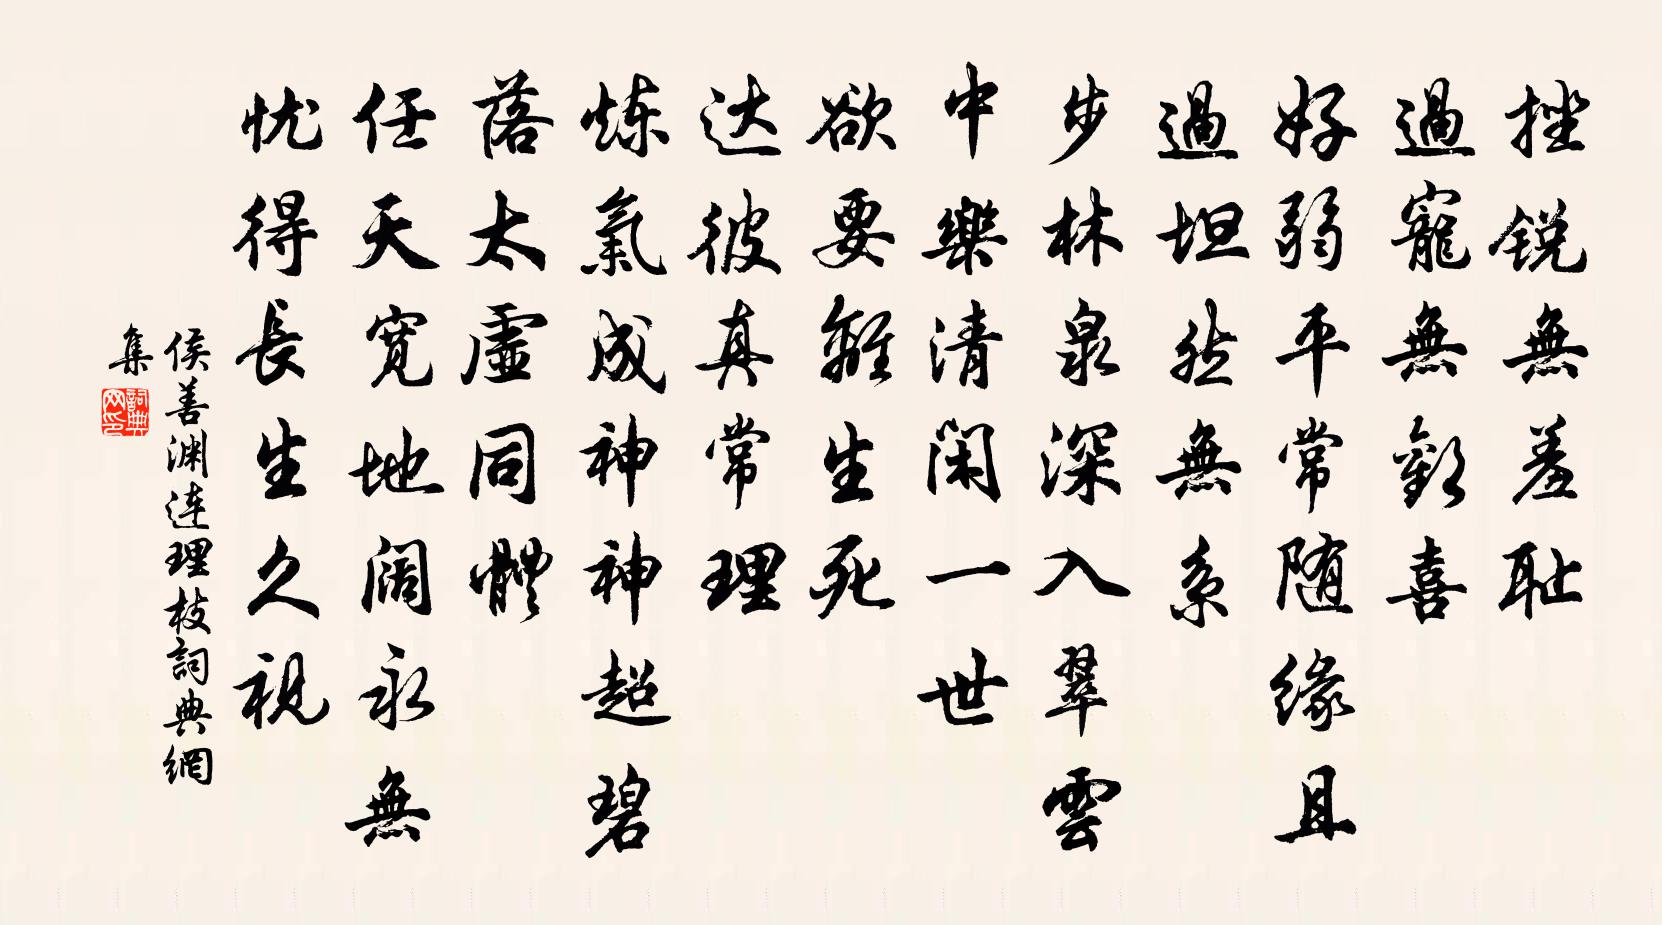 挫锐無羞耻
過寵無歡喜
好弱平常随缘且
過坦然無系
步林泉深入翠雲
中樂清闲一世
欲要離生死
达彼真常理
炼氣成神神超碧
落太虛同體
任天宽地阔永無
忧得長生久視
侯善渊连理枝詞典網
集
詞典网印